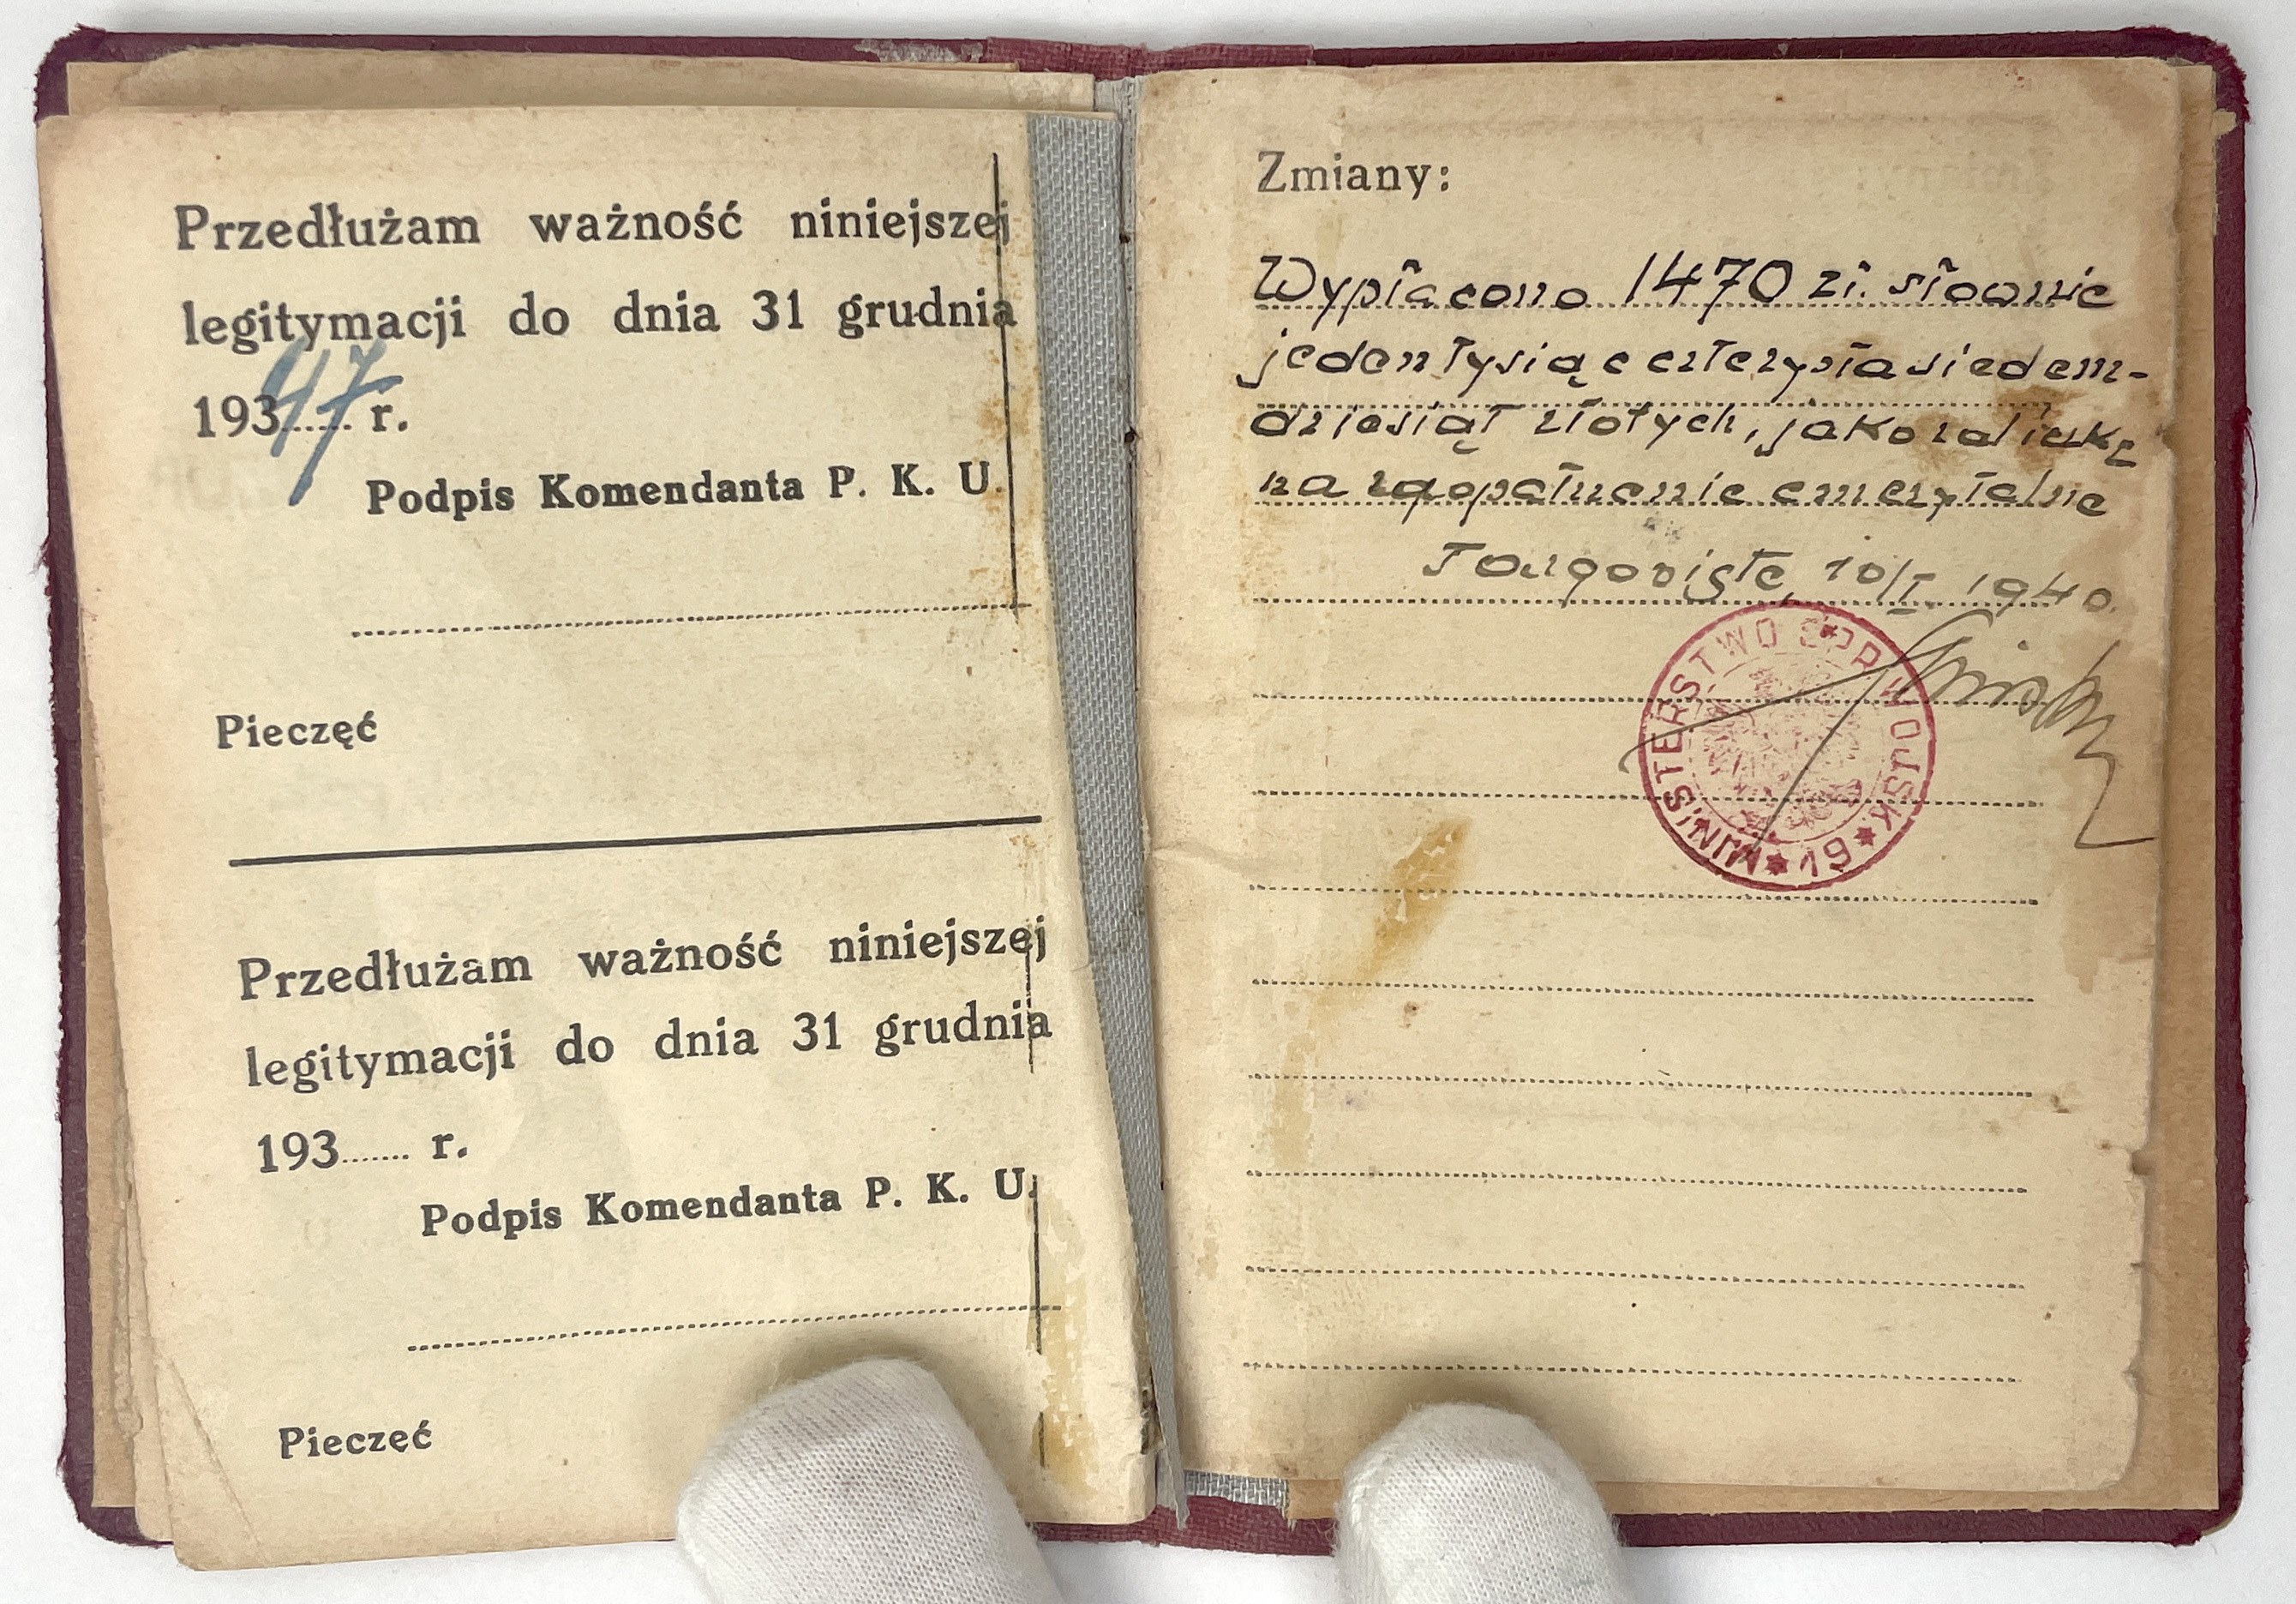 Przedłużam ważność niniejszej
legitymacji do dnia 31 grudnia
193 47 r.
Podpis Komendanta P. K. U.
Pieczęć
Przedłużam ważność niniejszej
legitymacji do dnia 31 grudnia
193....... r.
Podpis Komendanta P. K. U.
Pieczeć
Zmiany:
Wypłacono 1470 zł. słownie
jeden tysiąc czterysta siedem-
dziesiąt złotych, jako zaliczkę
na zaopatrzenie emerytalne
Targoviste, 10/I 1940.
MINISTERSTWO SPR. WOJSK. ★ 19 ★